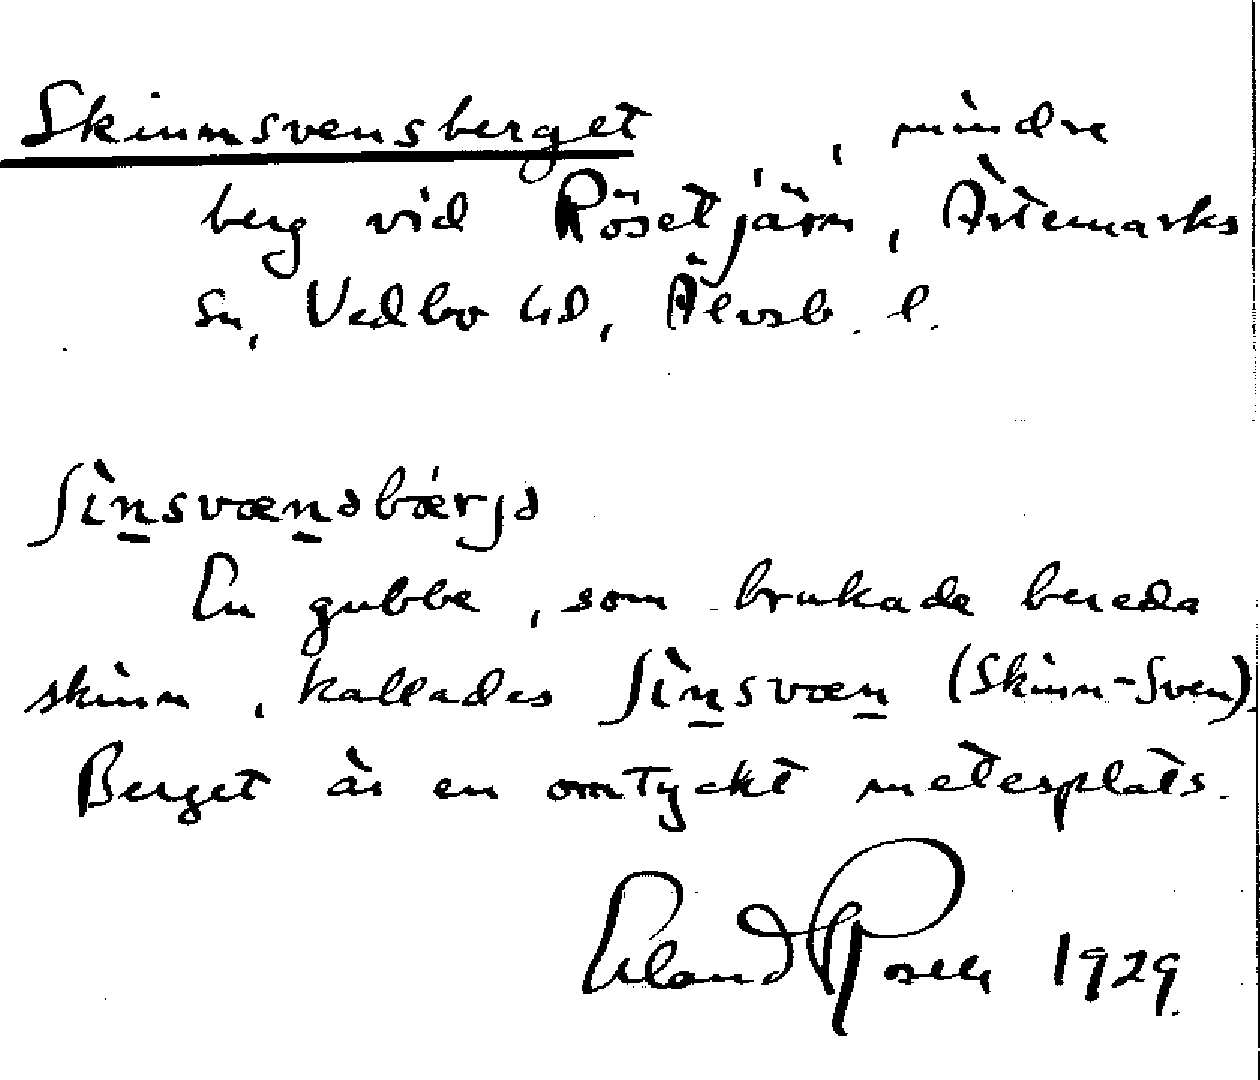 Skinnsvensberget, mindre
berg vid Rösetjärn, Ärtemarks
sn, Vedbo hd, Älvsb. l.
ʃìn̲svæn̲sbǽrjə
En gubbe, som brukade bereda
skinn, kallades ʃìn̲svæn̲ (Skinn-Sven).
Berget är en omtyckt metesplats.
Erland Rosell 1929.